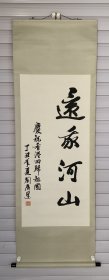 還我河山
慶祝香港回歸祖國
丁丑年夏